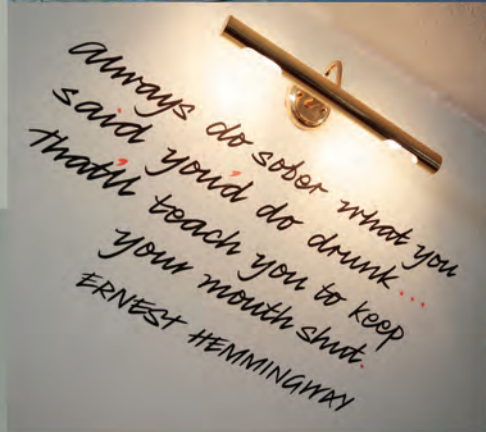 always do sober what you
said you'd do drunk...
that'll teach you to keep
your mouth shut.
ERNEST HEMMINGWAY